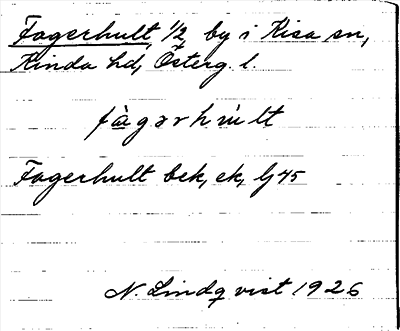 Fagerhult, 1/2 by i Kisa sn,
Kinda hd, Österg. l.
fàgərhùlt
Fagerhult bek, ek, Gj 45
N. Lindqvist 1926